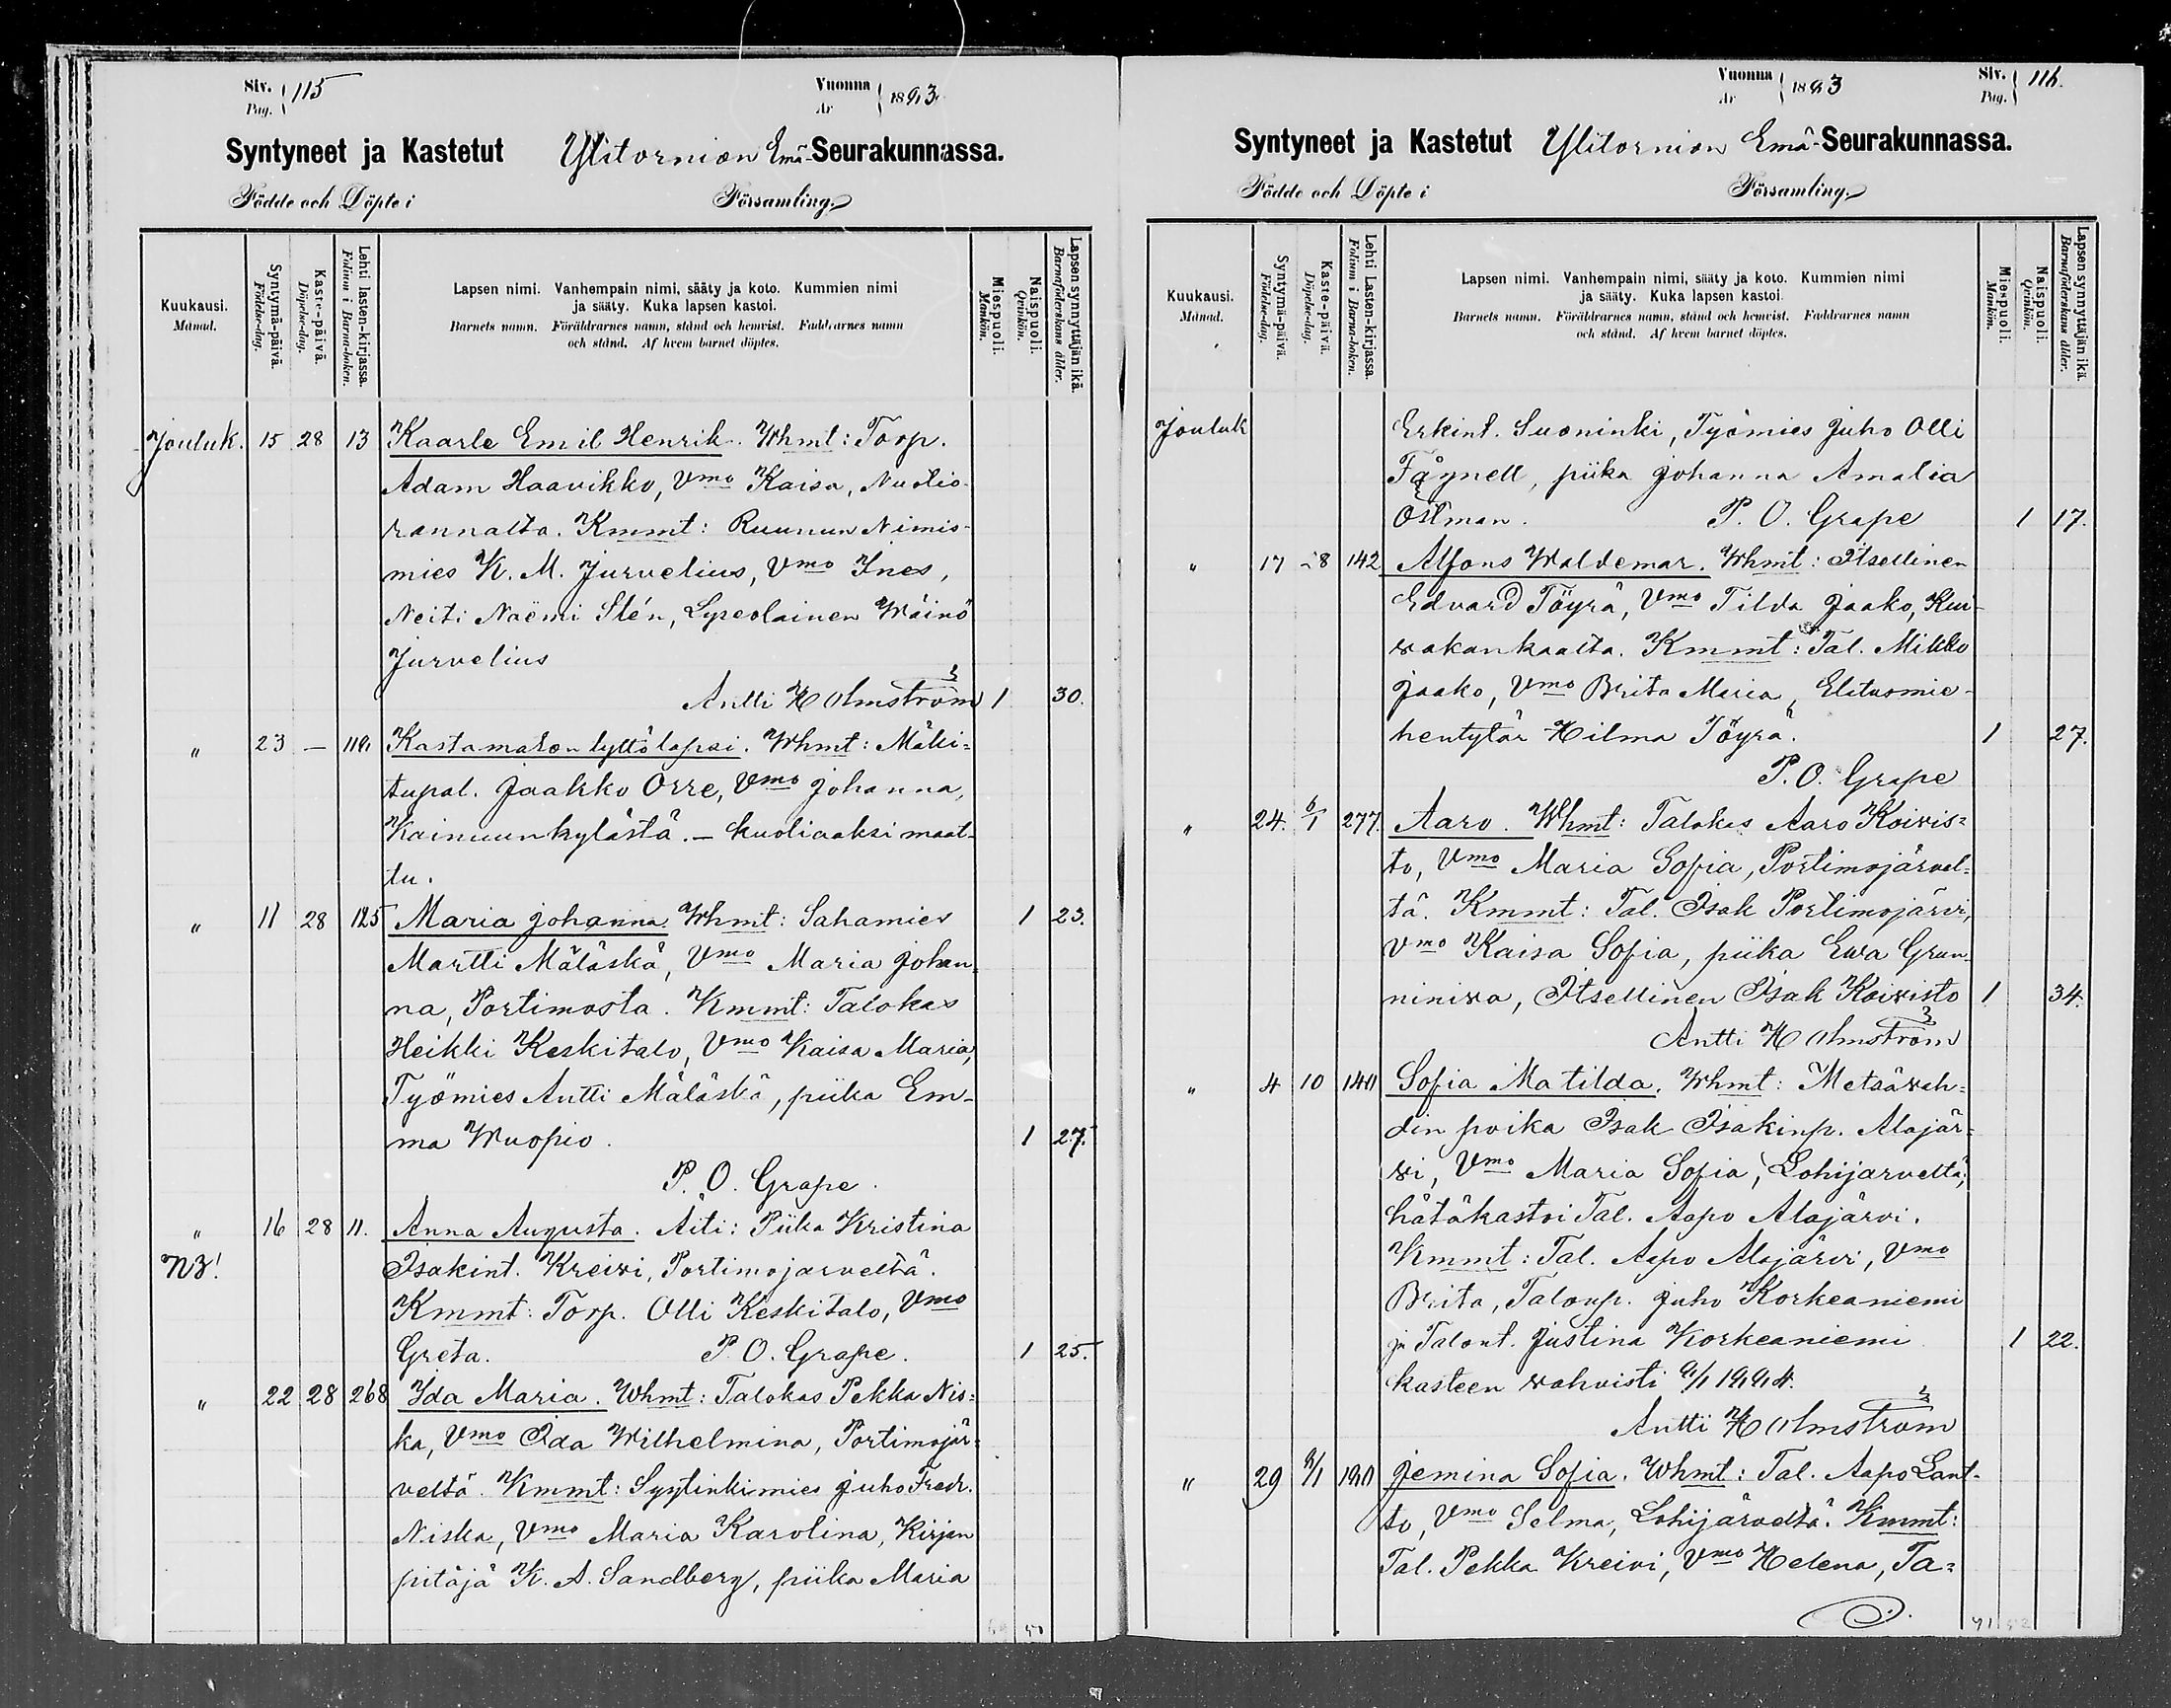 Siv. Pag. 115
Vuonna År 1893
Syntyneet ja Kastetut Ylitornion Emä-Seurakunnassa.
Födde och Döpte i Församling.
Kuukausi. Månad.
Syntymä-päivä. Födelse-dag.
Kaste-päivä. Döpelse-dag.
Lehti lasten-kirjassa. Folium i Barna-boken.
Lapsen nimi. Vanhempain nimi, sääty ja koto. Kummien nimi
ja sääty. Kuka lapsen kastoi.
Barnets namn. Föräldrarnes namn, stånd och hemvist. Faddrarnes namn
och stånd. Af hvem barnet döptes.
Miespuoli. Mankön.
Naispuoli. Qvinkön.
Lapsen synnyttäjän ikä. Barnaföderskans ålder.
Jouluk. 15 28 13 Kaarle Emil Henrik. Whmt: Torp.
Adam Haavikko, Vmo Kaisa, Nuolio-
rannalta. Kmmt: Ruunun Nimis-
mies K. M. Jurvelius, Vmo Ines,
Neiti Naëmi Stén, Lyseolainen Wäinö
Jurvelius
Antti Holmström 1 30.
" 23 — 119. Kastamaton tyttölapsi. Whmt: Mäki=
tupal. Jaakko Orre, Vmo Johanna,
Kainuunkylästä. — kuoliaaksi maat-
tu.
" 11 28 125 Maria Johanna. Whmt: Sahamies 1 23.
Martti Mäläskä, Vmo Maria Johan-
na, Portimosta. Kmmt: Talokas
Heikki Keskitalo, Vmo Kaisa Maria,
Työmies Antti Mäläskä, piika Em-
ma Wuopio. 1 27.
P. O. Grape.
" 16 28 11. Anna Augusta. Äiti: Piika Kristina
NB! Isakint. Kreiwi, Portimojarveltä.
Kmmt: Torp. Olli Keskitalo, Vmo
Greta. P. O. Grape. 1 25.
" 22 28 268 Ida Maria. Whmt: Talokas Pekka Nis=
ka, Vmo Ida Wilhelmina, Portimojär=
veltä. Kmmt: Syytinkimies Juho Fredr.
Niska, Vmo Maria Karolina, Kirjan
pitäjä K. A. Sandberg, piika Maria
Vuonna År 1893
Siv. Pag. 116.
Syntyneet ja Kastetut Ylitornion Emä-Seurakunnassa.
Födde och Döpte i Församling.
Kuukausi. Månad.
Syntymä-päivä. Födelse-dag.
Kaste-päivä. Döpelse-dag.
Lehti Lasten-kirjassa. Folium i Barna-boken.
Lapsen nimi. Vanhempain nimi, sääty ja koto. Kummien nimi
ja sääty. Kuka lapsen kastoi.
Barnets namn. Föräldrarnes namn, stånd och hemvist. Faddrarnes namn
och stånd. Af hvem barnet döptes.
Miespuoli. Mankön.
Naispuoli. Qvinkön.
Lapsen synnyttäjän ikä. Barnaföderskans ålder.
Jouluk Erkint. Suoninki, Työmies Juho Olli
piika Johanna Amalia
Östman. P. O. Grape 1 17.
" 17 28 142 Alfons Waldemar. Whmt: Itsellinen
Edvard Töyrä, Vmo Tilda Jaako, Kui-
wakankaalta. Kmmt: Tal. Mikko
Jaako, Vmo Brita Maria, Elatusmie-
hentytär Hilma Töyrä. 1 27.
P. O. Grape
" 24. 6/1 277. Aaro. Whmt: Talokas Aaro Koiwis=
to, Vmo Maria Sofia, Portimojärvel=
tä. Kmmt: Tal. Isak Portimojärvi,
Vmo Kaisa Sofia, piika Ewa Grun-
niniwa, Itsellinen Isak Koiwisto 1 34.
Antti Holmström
" 4 10 140 Sofia Matilda. Whmt: Metsäwah=
din poika Isak Isakinp. Alajär=
wi, Vmo Maria Sofia, Lohijarveltä;
hätäkastoi Tal. Aapo Alajärvi.
Kmmt: Tal. Aapo Alajärvi, Vmo
Brita, Talonp. Juho Korkeaniemi
ja Talont. Justina Korkeaniemi 1 22.
kasteen wahvisti
Antti Holmström
" 29 Jemina Sofia. Whmt: Tal. Aapo Lant-
to, Vmo Selma, Lohijärveltä. Kmmt:
Tal. Pekka Kreivi, Vmo Helena, Ta=